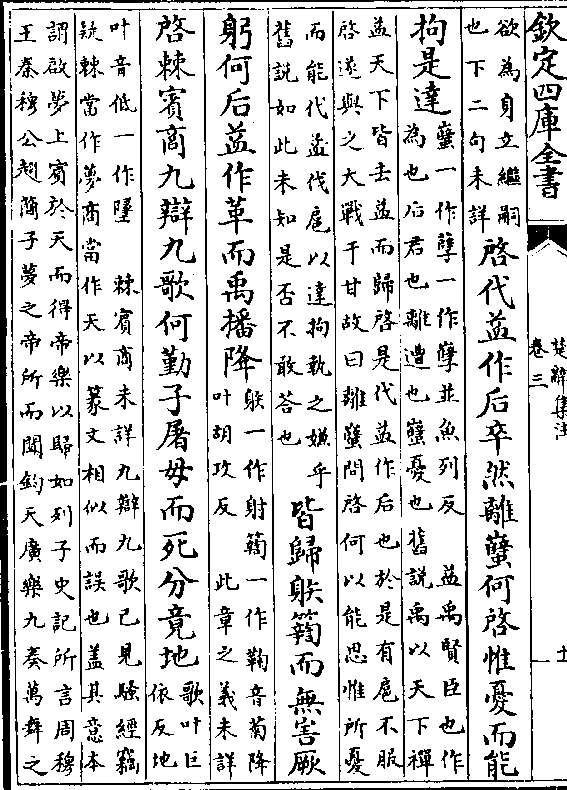 欽定四庫全書
楚辭集注
卷三
十一
欲為身立繼嗣
也下二句未詳
啓代益作后卒然離蠥何啓惟憂而能
拘是達
蠥一作孽一作孼並魚列反 益禹賢臣也作
為也后君也離遭也蠥憂也舊說禹以天下禪
益天下皆去益而歸啓是代益作后也於是有扈不服
啓遂與之大戰于甘故曰離蠥問啓何以能思惟所憂
而能代益伐扈以達拘執之嫌乎
舊說如此未知是否不敢答也
皆歸䠶䉤而無害厥
躬何后益作革而禹播降
䠶一作射䉤一作鞠音菊降
叶胡攻反 此章之義未詳
啓棘賓商九辯九歌何勤子屠母而死分竟地
歌叶巨
依反地
叶音低一作墬 棘賓商未詳九辯九歌已見騷經竊
疑棘當作夢商當作天以篆文相似而誤也蓋其意本
謂啟夢上賓於天而得帝樂以歸如列子史記所言周穆
王秦穆公趙簡子夢之帝所而聞鈞天廣樂九奏萬舞之